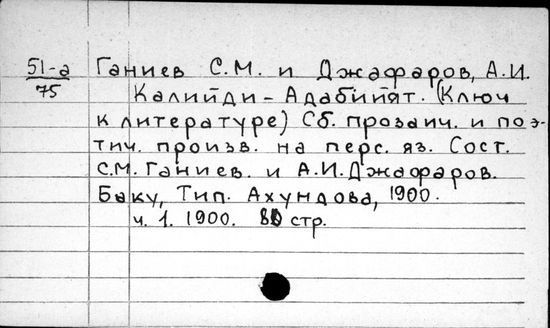 51-а Ганиев С.М. и Джафаров, А.И.
75 Калийди-Адабийят. (Ключ
к литературе) Сб. прозаич. и поэ-
тич. произв. на перс. яз. Сост.
С.М. Ганиев. и А.И. Джафаров.
Баку, Тип. Ахундова, 1900.
ч. 1. 1900. стр.